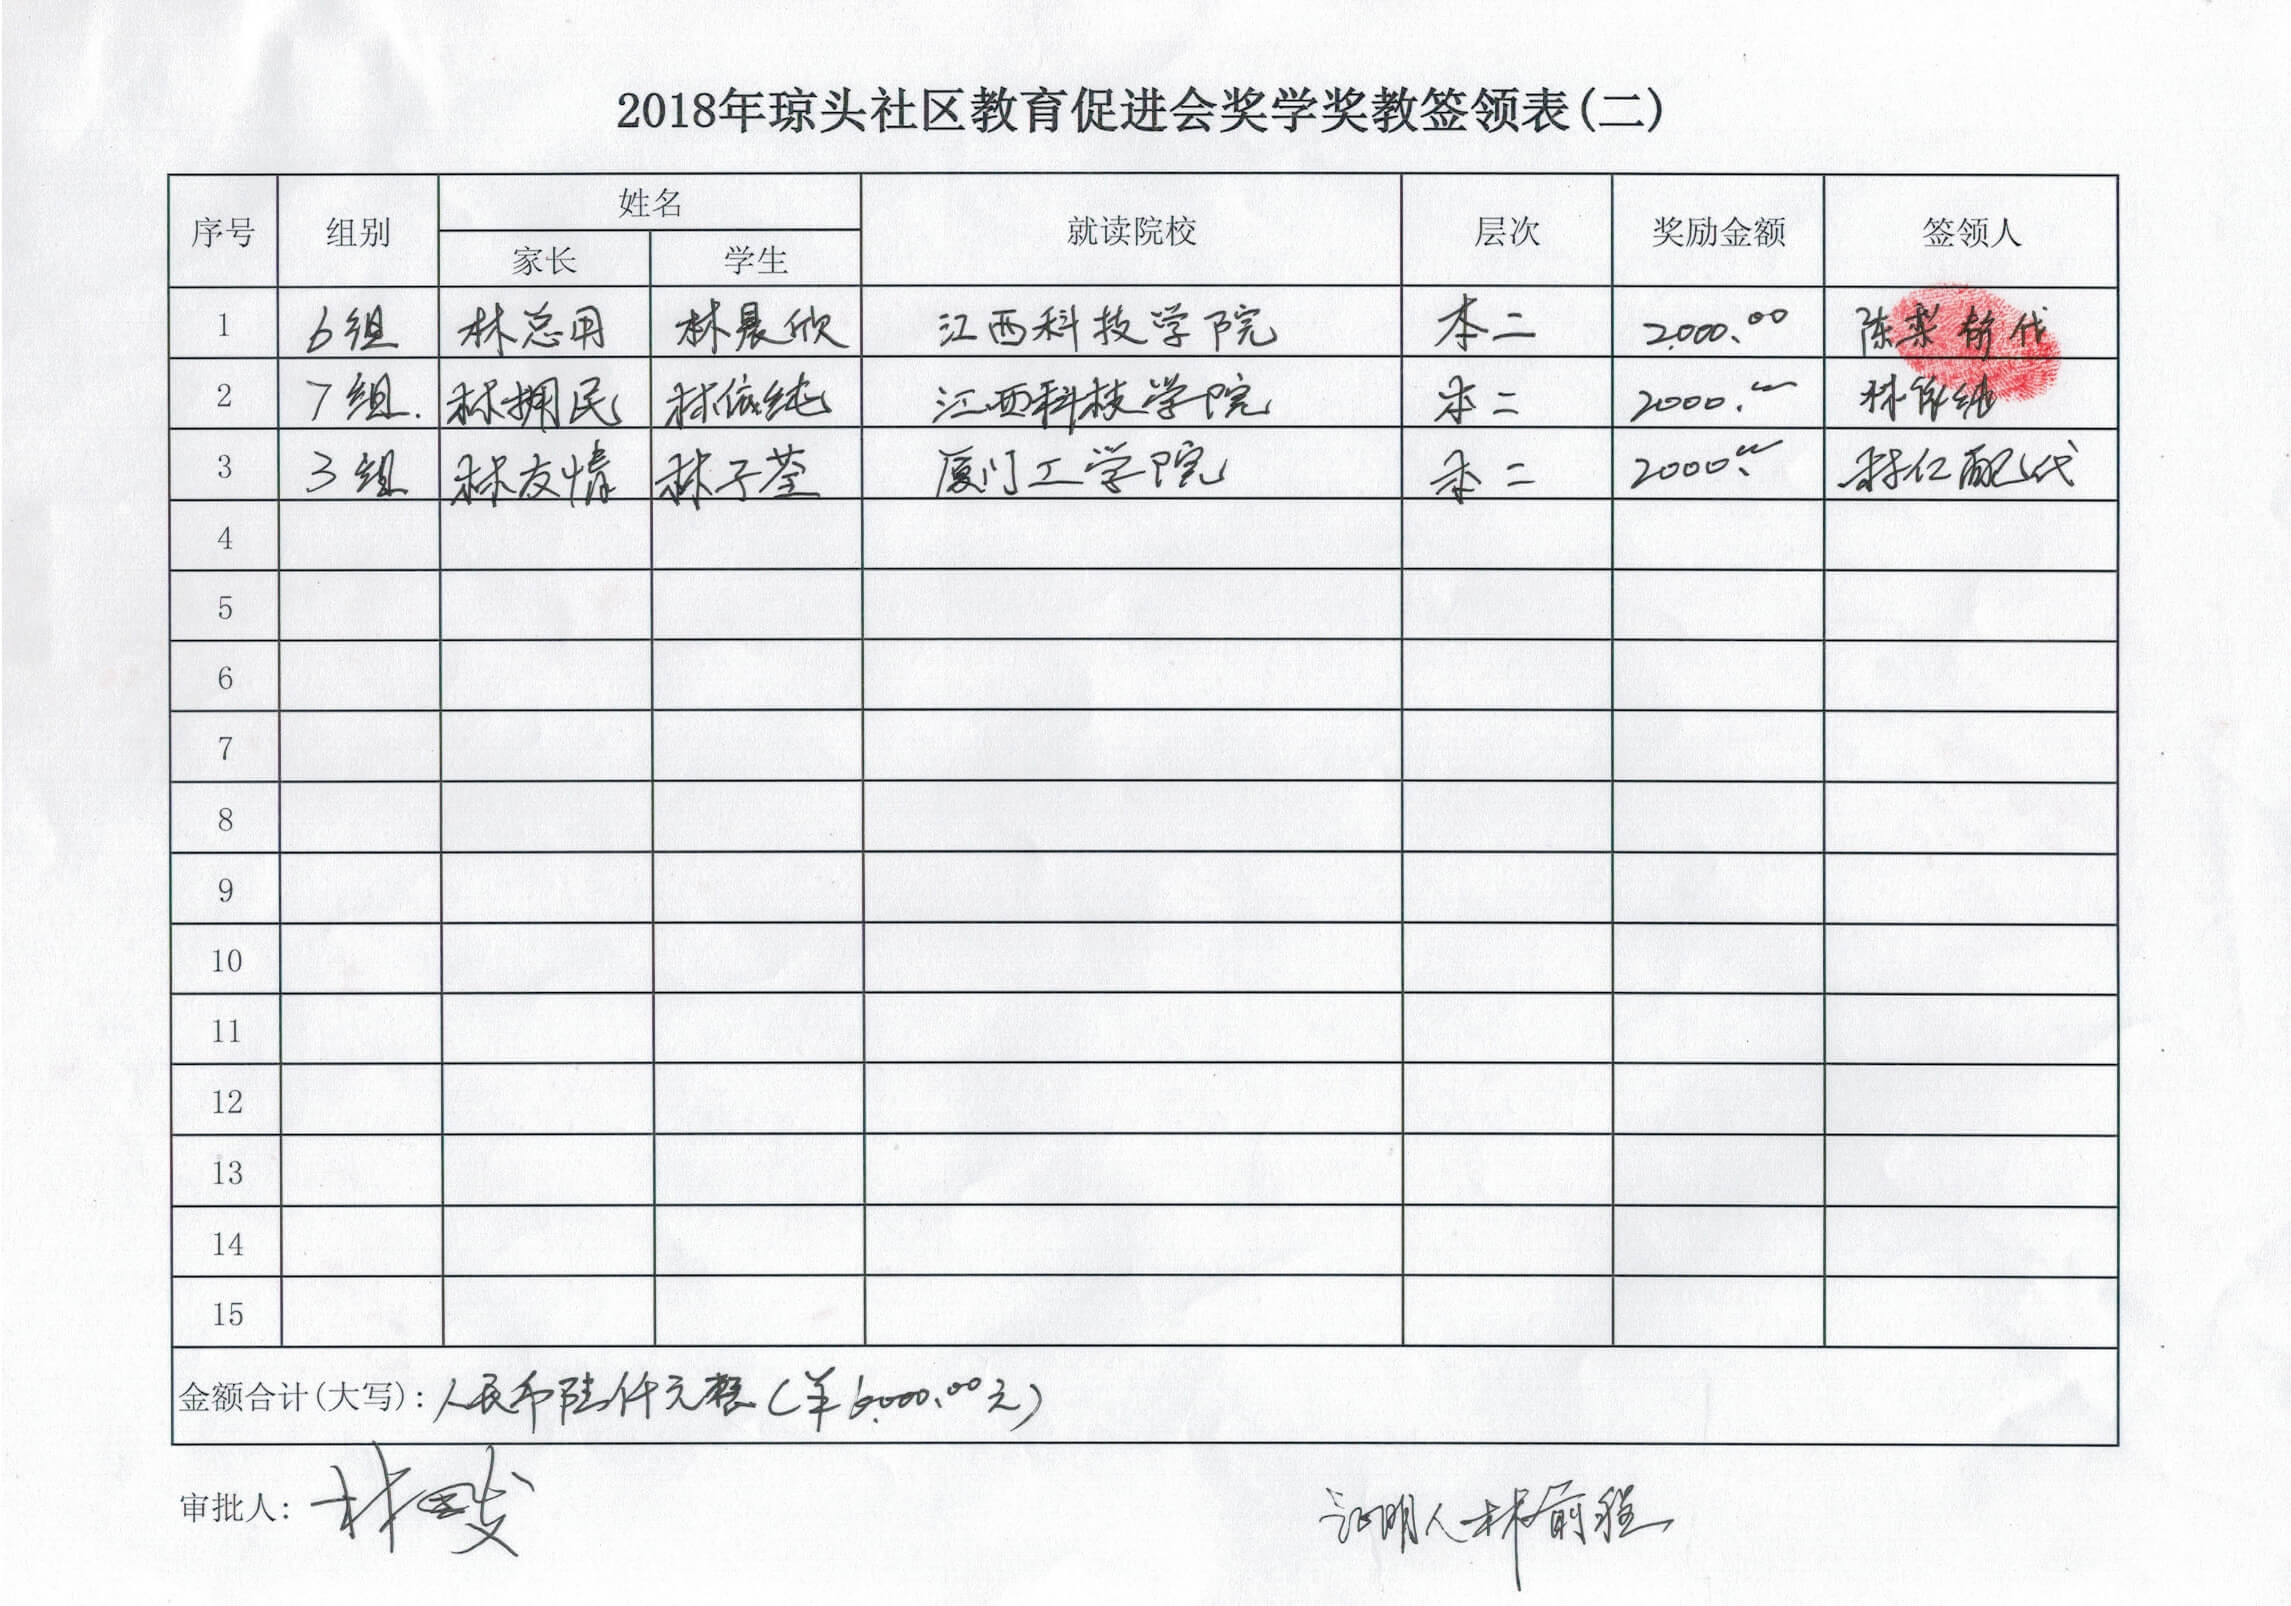 2018年琼头社区教育促进会奖学奖教签领表(二)
序号 组别 姓名 就读院校 层次 奖励金额 签领人
家长 学生
1 6组 林总用 林晨欣 江西科技学院 本二 2000.00 陈 代
2 7组. 林拥民 林依纯 江西科技学院 本二 2000. 林依纯
3 3组 林友情 林子荃 厦门工学院 本二 2000. 林仁配代
4
5
6
7
8
9
10
11
12
13
14
15
金额合计(大写): 人民币陆仟元整(¥6000.00元)
审批人: 林
证明人林前程